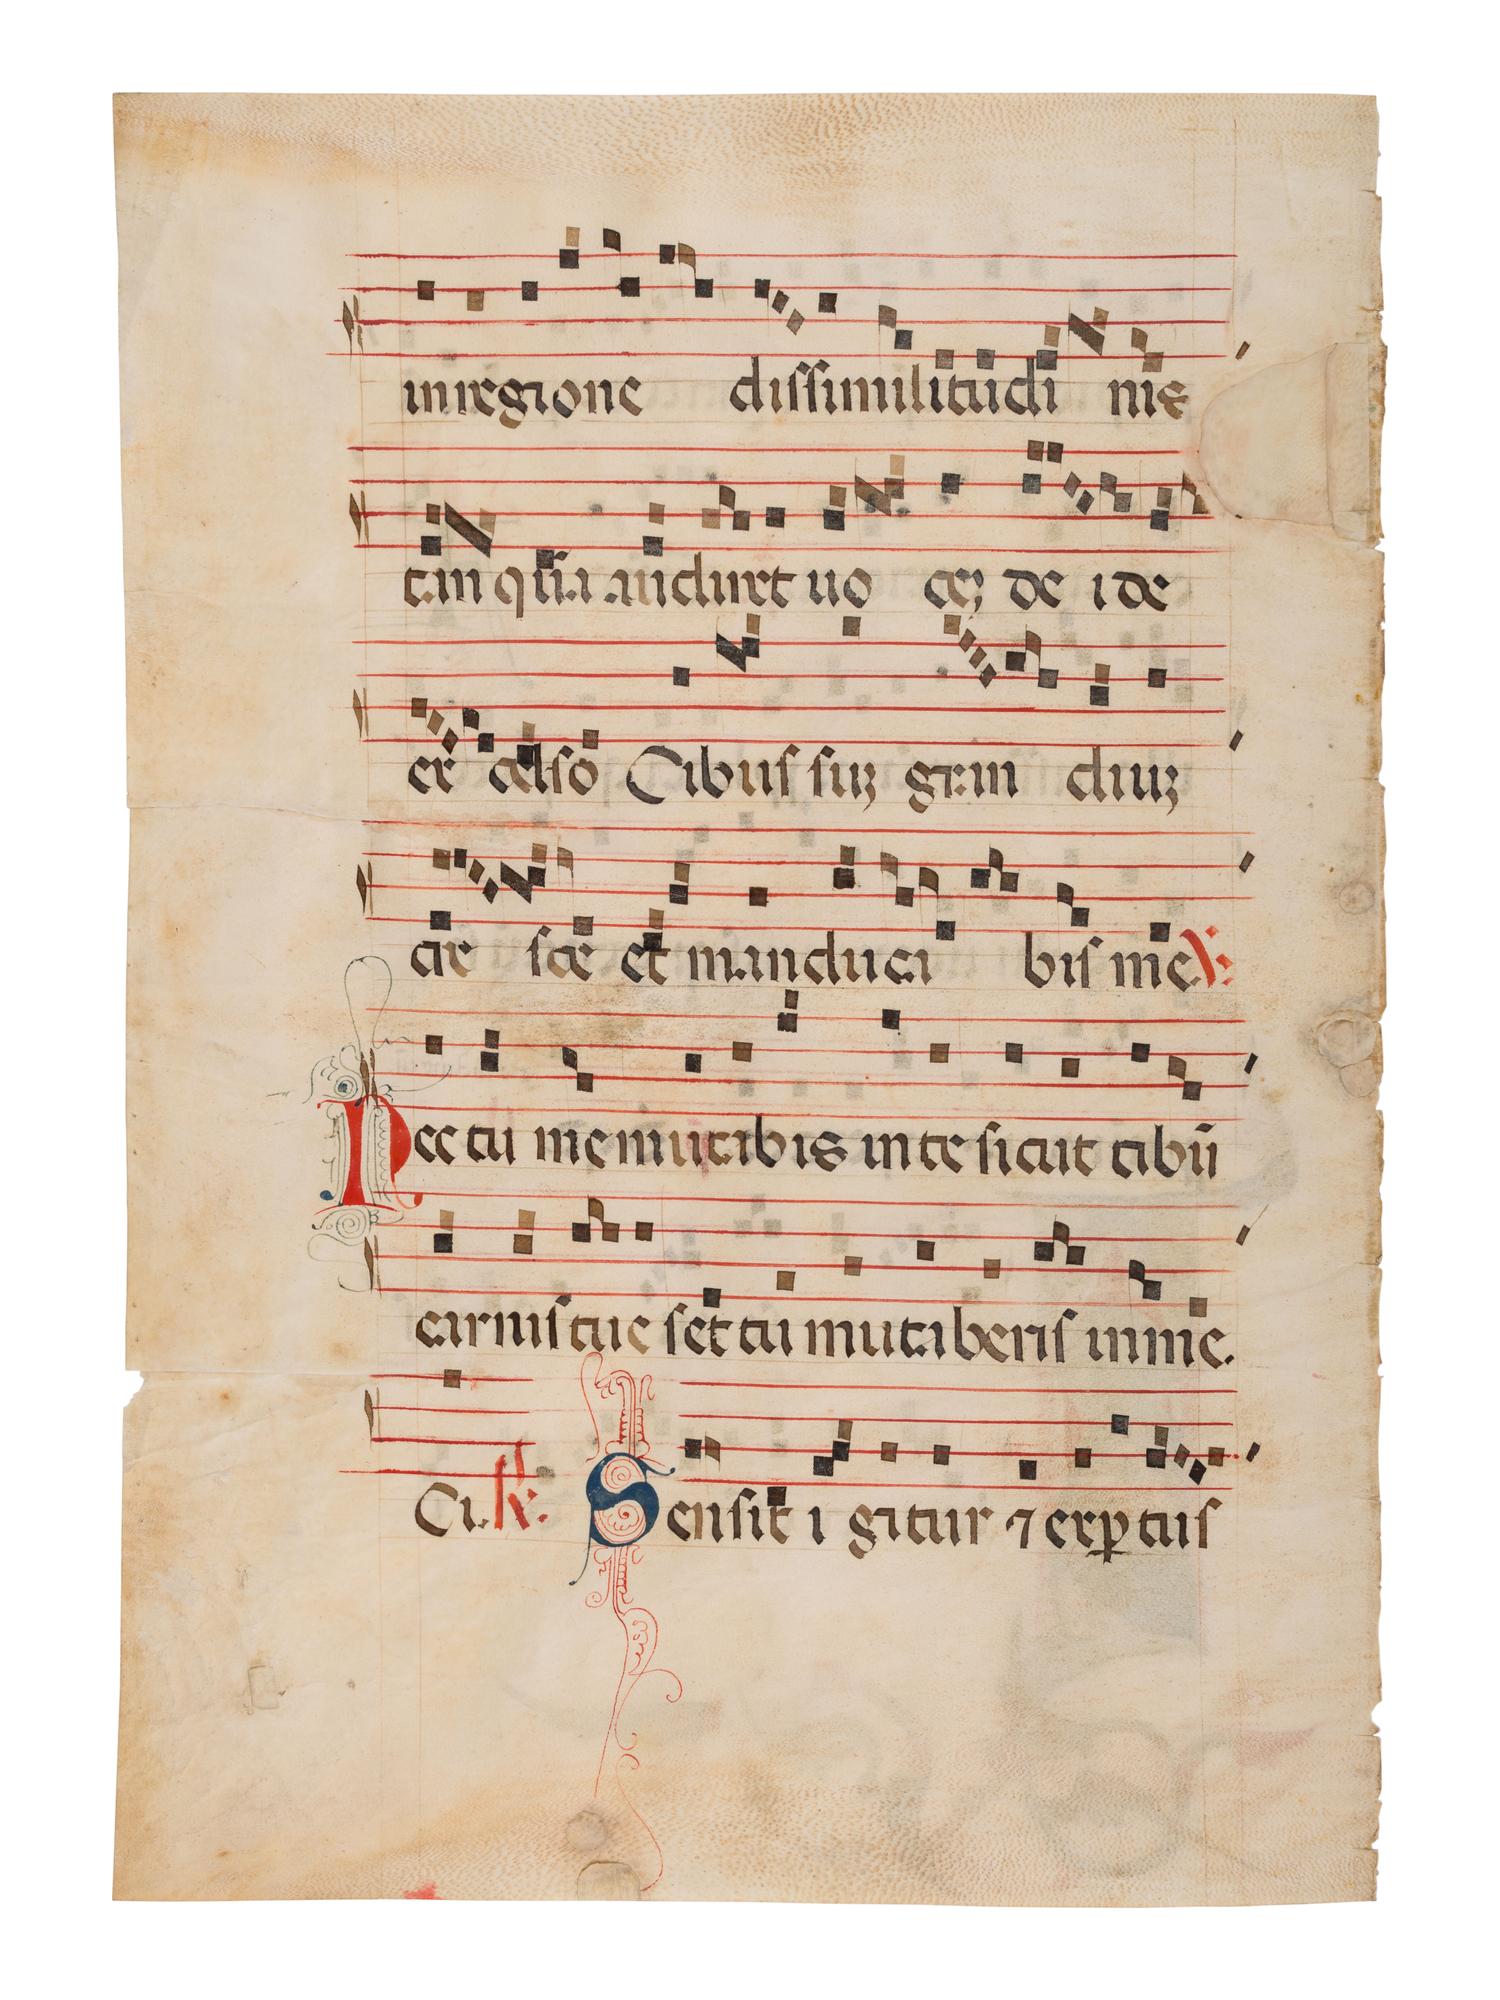 in regione dissimilitudi nis
tan qua audiret uo ceʒ de i de
ex celso Cibus suʒ gran diuʒ
cre sce et manduca bis me ℣:
Nec tu me mutabis in te sicut cibū
carnis tue set tu mutaberis in me.
Ci. ℟. Sensit i gitur ⁊ exꝑtus